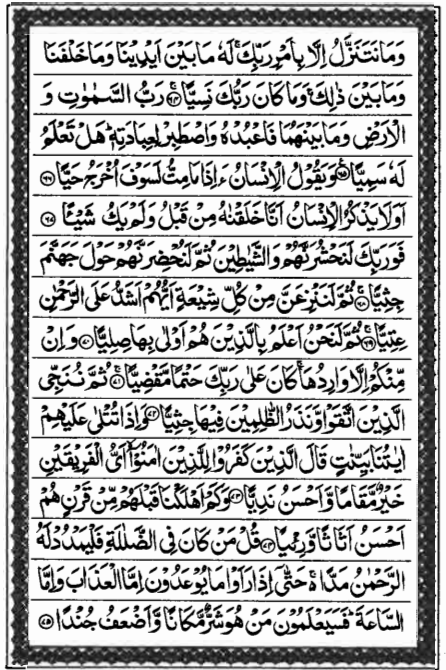 وَمَا نَتَنَزَّلُ اِلَّا بِاَمْرِ رَبِّكَ ۚ لَهٗ مَا بَيْنَ اَيْدِيْنَا وَمَا خَلْفَنَا
وَمَا بَيْنَ ذٰلِكَ ۚ وَمَا كَانَ رَبُّكَ نَسِيًّا ۚ۝۶۴ رَبُّ السَّمٰوٰتِ وَ
الْاَرْضِ وَمَا بَيْنَهُمَا فَاعْبُدْهُ وَاصْطَبِرْ لِعِبَادَتِهٖ ؕ هَلْ تَعْلَمُ
لَهٗ سَمِيًّا ۠۝۶۵ وَيَقُوْلُ الْاِنْسَانُ ءَاِذَا مَامِتُّ لَسَوْفَ اُخْرَجُ حَيًّا ۝۶۶
اَوَلَا يَذْكُرُ الْاِنْسَانُ اَنَّا خَلَقْنٰهُ مِنْ قَبْلُ وَلَمْ يَكُ شَيْـًٔا ۝۶۷
فَوَرَبِّكَ لَنَحْشُرَنَّهُمْ وَالشَّيٰطِيْنَ ثُمَّ لَنُحْضِرَنَّهُمْ حَوْلَ جَهَنَّمَ
جِثِيًّا ۚ۝۶۸ ثُمَّ لَنَنْزِعَنَّ مِنْ كُلِّ شِيْعَةٍ اَيُّهُمْ اَشَدُّ عَلَى الرَّحْمٰنِ
عِتِيًّا ۚ۝۶۹ ثُمَّ لَنَحْنُ اَعْلَمُ بِالَّذِيْنَ هُمْ اَوْلٰى بِهَا صِلِيًّا ۝۷۰ وَاِنْ
مِّنْكُمْ اِلَّا وَارِدُهَا ۚ كَانَ عَلٰى رَبِّكَ حَتْمًا مَّقْضِيًّا ۚ۝۷۱ ثُمَّ نُنَجِّى
الَّذِيْنَ اتَّقَوْا وَّنَذَرُ الظّٰلِمِيْنَ فِيْهَا جِثِيًّا ۝۷۲ وَاِذَا تُتْلٰى عَلَيْهِمْ
اٰيٰتُنَا بَيِّنٰتٍ قَالَ الَّذِيْنَ كَفَرُوْا لِلَّذِيْنَ اٰمَنُوْۤا ۙ اَىُّ الْفَرِيْقَيْنِ
خَيْرٌ مَّقَامًا وَّاَحْسَنُ نَدِيًّا ۝۷۳ وَكَمْ اَهْلَكْنَا قَبْلَهُمْ مِّنْ قَرْنٍ هُمْ
اَحْسَنُ اَثَاثًا وَّرِءْيًا ۝۷۴ قُلْ مَنْ كَانَ فِى الضَّلٰلَةِ فَلْيَمْدُدْ لَهُ
الرَّحْمٰنُ مَدًّا ۚ۬ حَتّٰۤى اِذَا رَاَوْا مَا يُوْعَدُوْنَ اِمَّا الْعَذَابَ وَاِمَّا
السَّاعَةَ ؕ فَسَيَعْلَمُوْنَ مَنْ هُوَ شَرٌّ مَّكَانًا وَّاَضْعَفُ جُنْدًا ۝۷۵